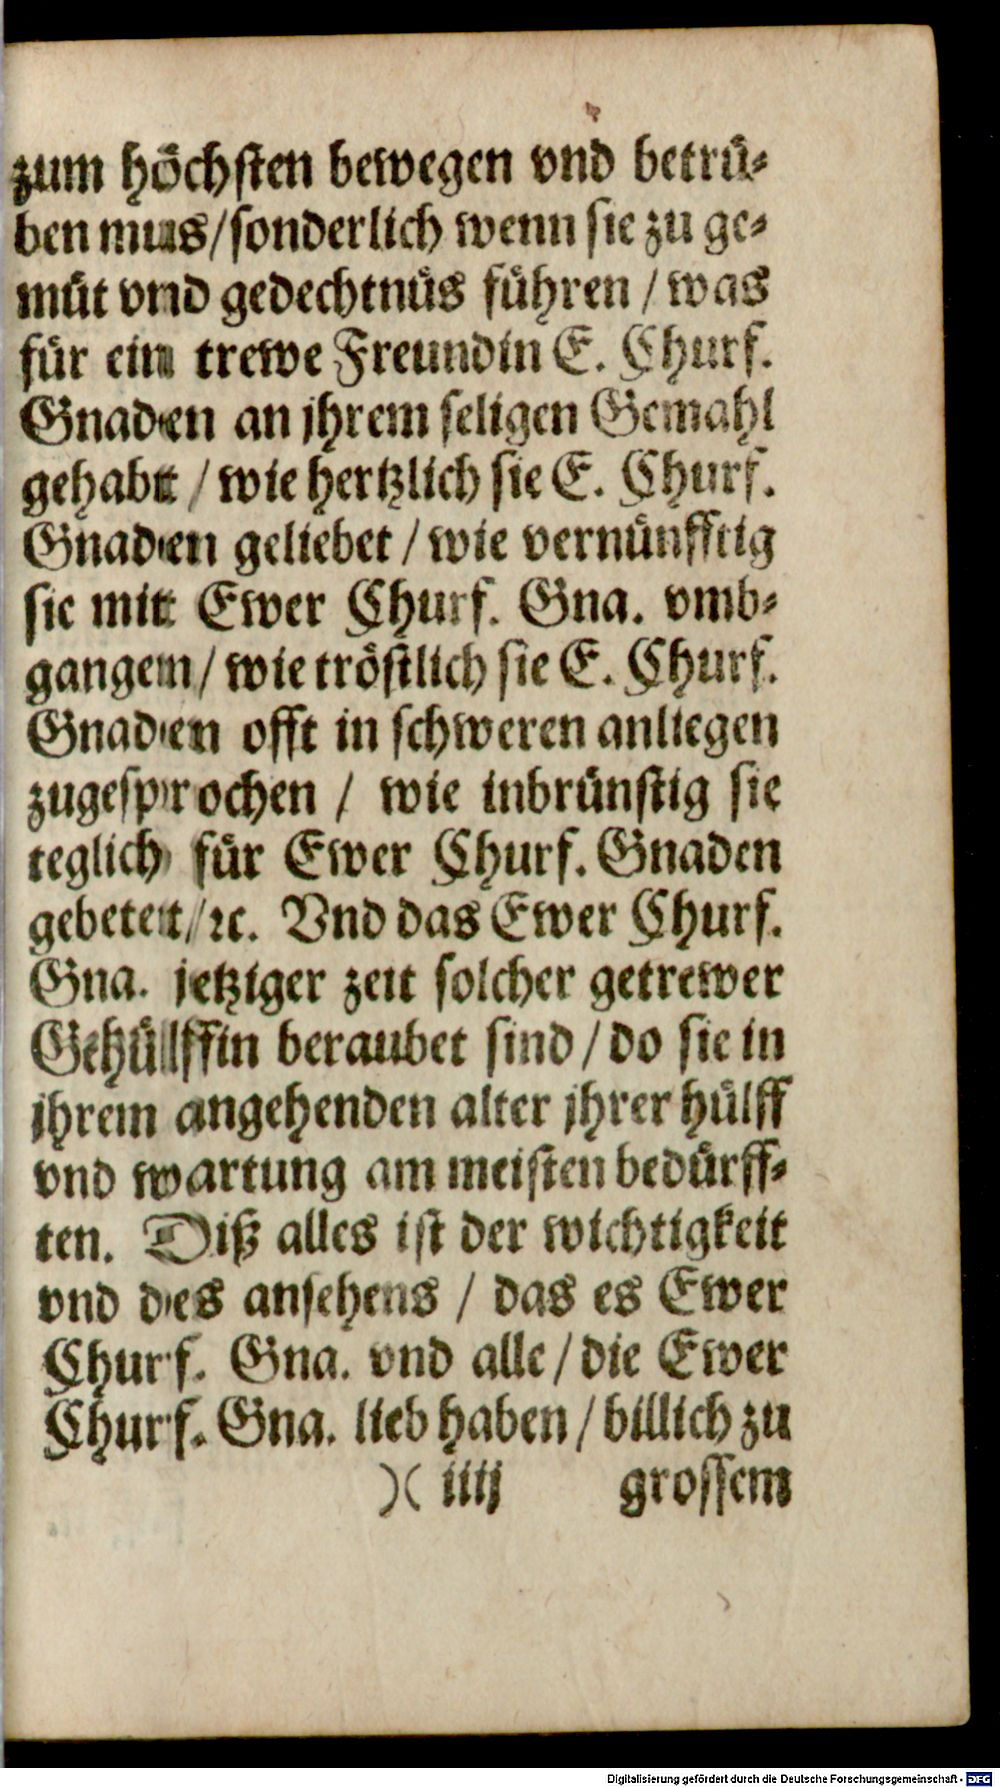 zum höchsten bewegen vnd betrü-
ben mus/sonderlich wenn sie zu ge-
müt vnd gedechtnüs führen / was
für ein trewe Freundin E. Churf.
Gnaden an jhrem seligen Gemahl
gehabt / wie hertzlich sie E. Churf.
Gnaden geliebet / wie vernünfftig
sie mit Ewer Churf. Gna. vmb-
gangen / wie tröstlich sie E. Churf.
Gnaden offt in schweren anliegen
zugesprochen / wie inbrünstig sie
teglich für Ewer Churf. Gnaden
gebetet/ꝛc. Vnd das Ewer Churf.
Gna. jetziger zeit solcher getrewer
Gehülffin beraubet sind / do sie in
jhrem angehenden alter jhrer hülff
vnd wartung am meisten bedürff-
ten. Diß alles ist der wichtigkeit
vnd des ansehens / das es Ewer
Churf. Gna. vnd alle / die Ewer
Churf. Gna. lieb haben / billich zu
)( iiij grossem
Digitalisierung gefördert durch die Deutsche Forschungsgemeinschaft - DFG